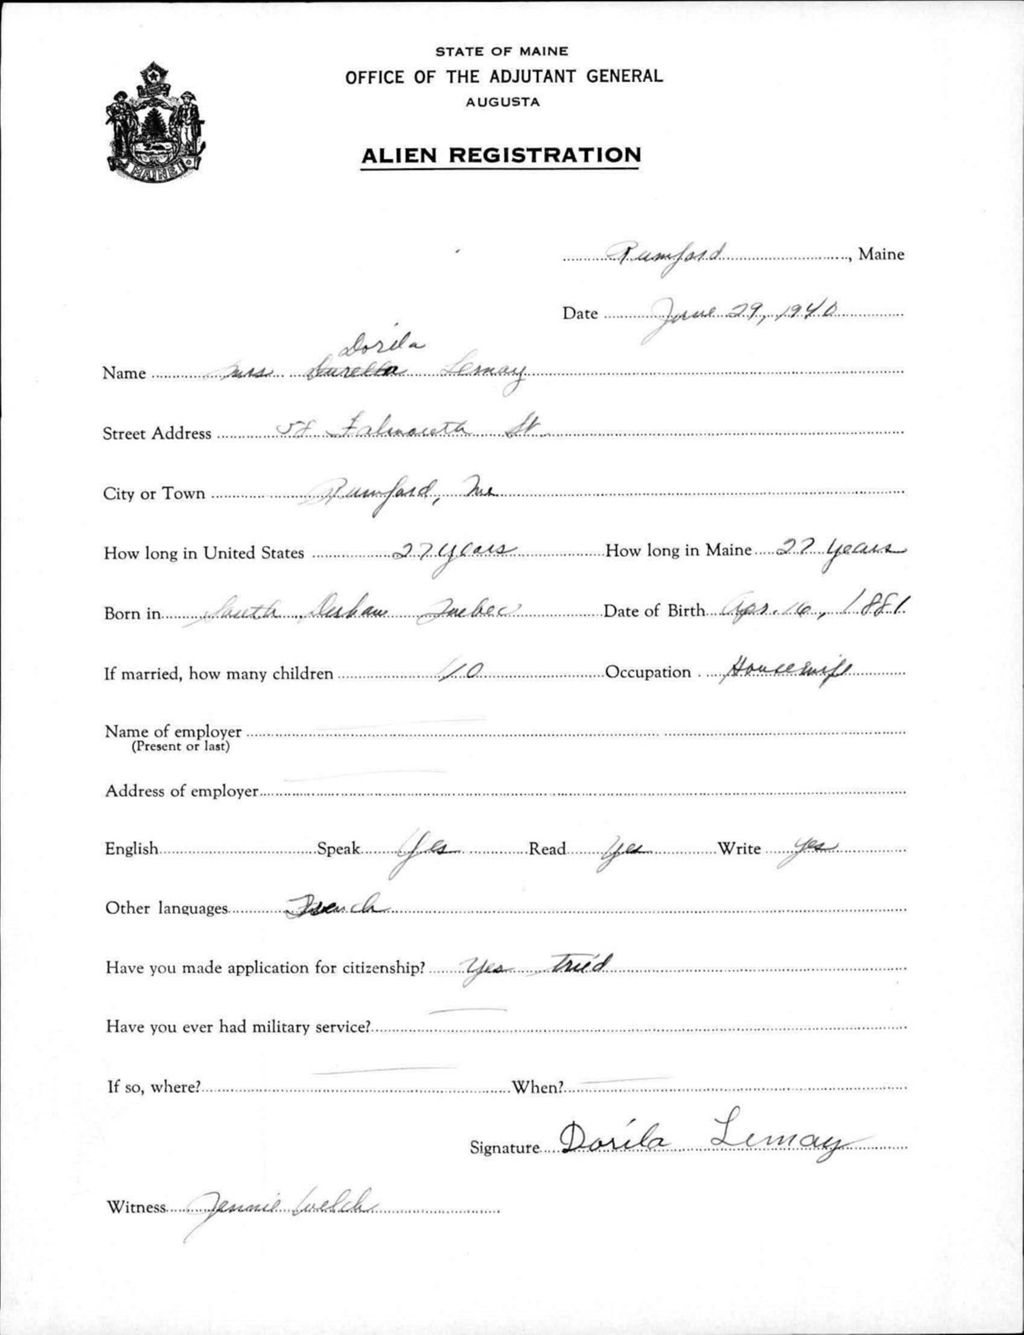 STATE OF MAINE
OFFICE OF THE ADJUTANT GENERAL
AUGUSTA
MAINE
ALIEN REGISTRATION
Rumford, Maine
Date June 29, 1940
Dorila
Name Mrs Lemay
Street Address 58 Falmouth St.
City or Town Rumford, Me
How long in United States 27 years How long in Maine 27 years
Born in South Durham Quebec Date of Birth Apr. 16, 1881
If married, how many children 10 Occupation Housewife
Name of employer
(Present or last)
Address of employer
English Speak Yes Read Yes Write yes
Other languages French
Have you made application for citizenship? Yes tried
Have you ever had military service?
If so, where? When?
Signature Dorila Lemay
Witness Jennie Welch